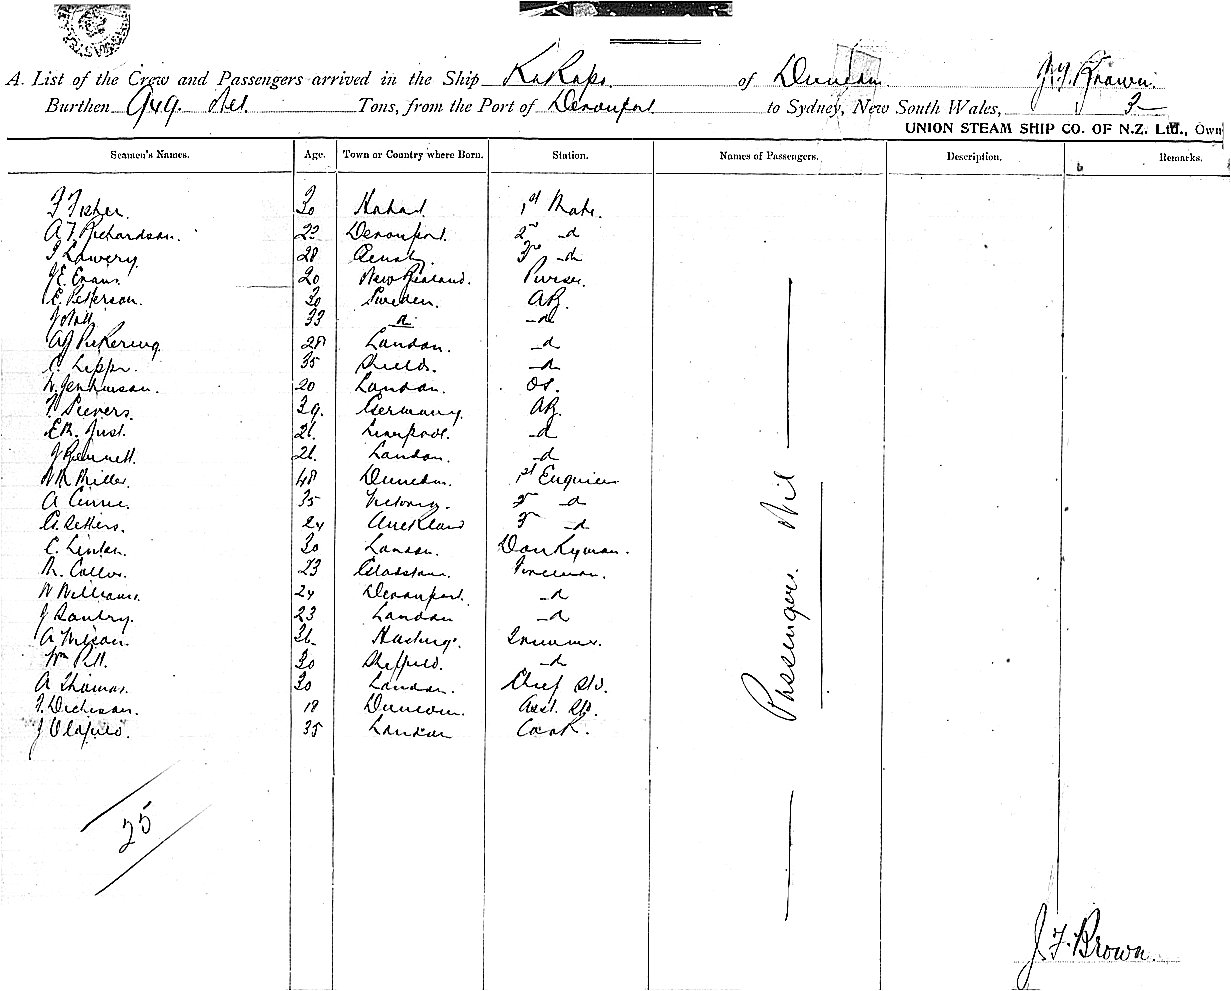 A. List of the Crew and Passengers arrived in the Ship KaKapo of Dunedin J.F. Brown
Burthen 949 Net Tons, from the Port of Devonport to Sydney, New South Wales, 3
UNION STEAM SHIP CO. OF N.Z. Ltd., Own
Seamen's Names. Age. Town or Country where Born. Station. Names of Passengers. Description. Remarks.
F Fisher. 30 Hobart 1st Mate.
A.F. Richardson. 22 Devonport. 2nd d
Lowery 28 3rd d
J E. Evans. 20 New Zealand. Purser.
E. Petterson. 30 Sweden. AB.
33 d d
A J Pickering 28 London. d
C. 35 Shields. d
W. Jenkinson. 20 London. OS.
Sievers. 39. Germany. AB.
E.R. Just. 26. Liverpool. d
J Bennett. 26. London. d
W R Miller. 48 Dunedin. 1st Engineer
A Currie. 35 Victoria. 2 d
24 Auckland 3 d
C. Linton. 30 London. Donkyman.
23 Gladstone. Fireman.
W Williams. 24 Devonport. d
J 23 London d
A Wilson. 36. Hastings. Trimmer.
Wm Pitt. 30 Sheffield. d
A Thomas. 30 London. Chief Std.
Dickison. 18 Dunedin. Asst. Std.
J 35 London Cook.
Passengers Nil
25
J. F. Brown.